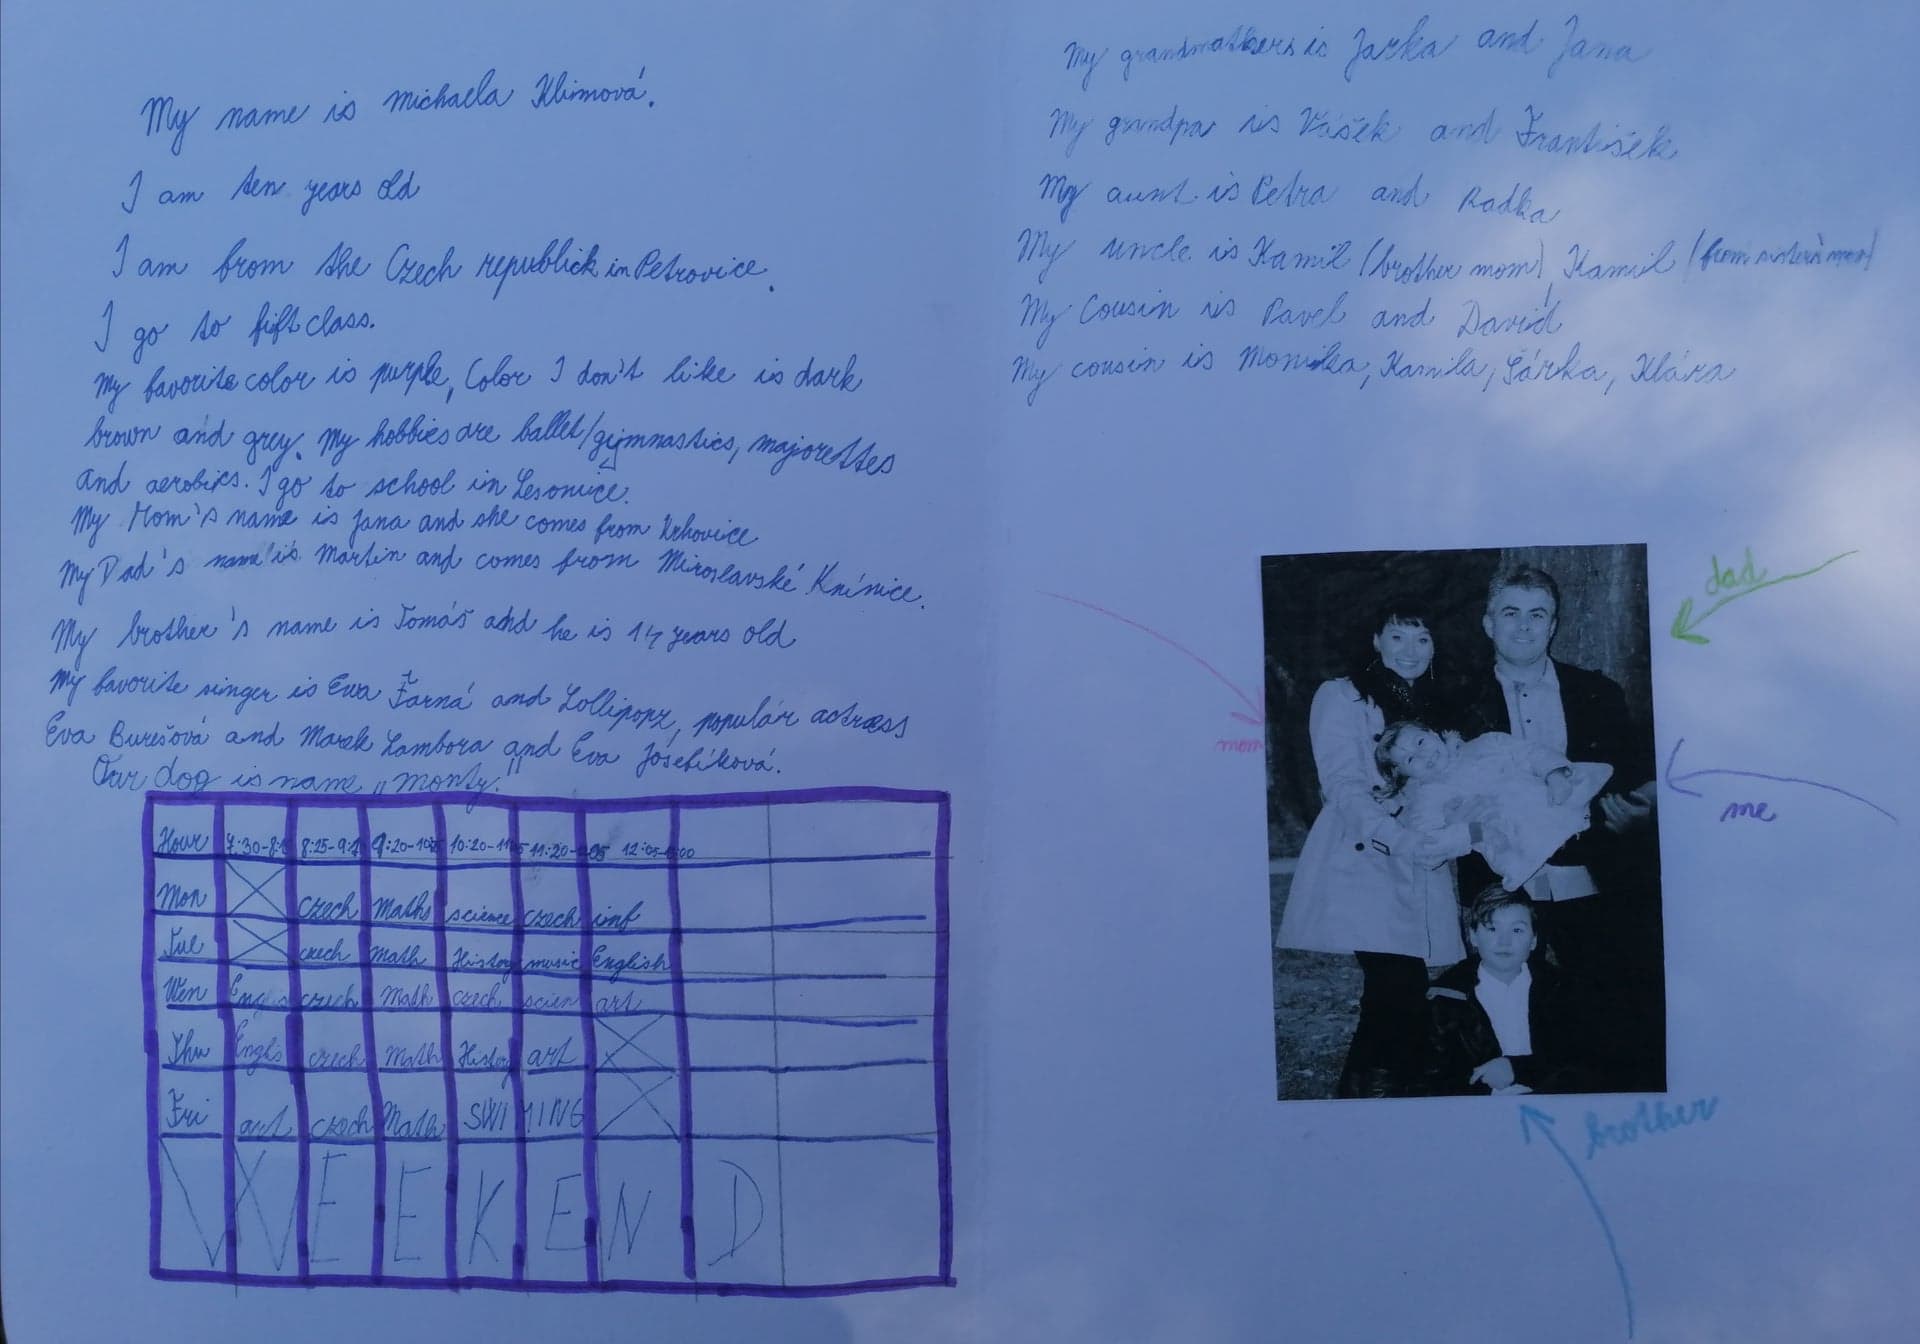 My name is Michaela Klimová.
I am ten years old
I am from the Czech republick in Petrovice.
I go to fift class.
My favorite color is purple, Color I don't like is dark
brown and grey. My hobbies are ballet/gymnastics, majorettes
and aerobics. I go to school in Lesonice.
My Mom's name is Jana and she comes from Krhovice
My Dad's name is Martin and comes from Miroslavské Knínice.
My brother's name is Tomáš and he is 14 years old
My favorite singer is Ewa Farná and Lollipopz, populár actress
Eva Burešová and Marek Lambora and Eva Josefíková.
Our dog is name „Monty."
Hour 7:30-8: 8:25-9: 9:20-10: 10:20-11: 11:20-12:05 12:05-
Mon czech Maths science czech inf
Tue czech Math History music English
Wen Englis czech Math czech scien art
Thu Englis czech Math History art
Fri art czech Math SWIMING
WEEKEND
My grandmathers is Jarka and Jana
My grandpa is Vášek and František
My aunt is Petra and Radka
My uncle is Kamil (brother mom), Kamil (from sister's mom)
My Cousin is Pavel and David
My cousin is Monika, Kamila, Šárka, Klára
dad
mom
me
brother